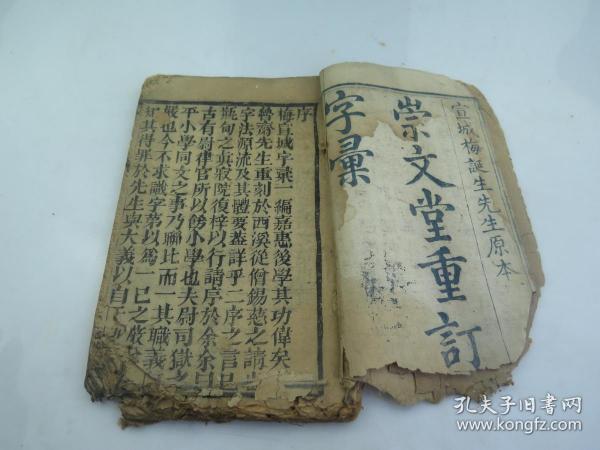 宣城梅誕生先生原本
崇文堂重訂
字彙
序
梅宣城字彙一編嘉惠後學其功偉矣
魯齋先生重刻於西溪從僧錫慈之請也
字法原流及其體要蓋詳乎二序之言已
瓶甸之真寂院復梓以行請序於余余曰
古有尉律官所以飭小學也夫尉司獄之
平小學同文之事乃聯比而一其職義
嚴也今不求識字苐以爲一巳之嚴
其得罪於先生與大義以自
孔夫子旧书网
www.kongfz.com